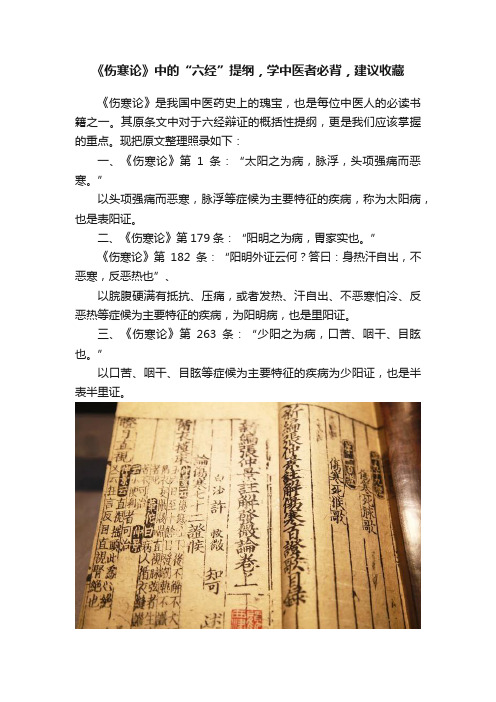 《伤寒论》中的“六经”提纲，学中医者必背，建议收藏
《伤寒论》是我国中医药史上的瑰宝，也是每位中医人的必读书
籍之一。其原条文中对于六经辩证的概括性提纲，更是我们应该掌握
的重点。现把原文整理照录如下：
一、《伤寒论》第1条：“太阳之为病，脉浮，头项强痛而恶
寒。”
以头项强痛而恶寒，脉浮等症候为主要特征的疾病，称为太阳病，
也是表阳证。
二、《伤寒论》第179条：“阳明之为病，胃家实也。”
《伤寒论》第182条：“阳明外证云何？答曰：身热汗自出，不
恶寒，反恶热也”、
以脘腹硬满有抵抗、压痛，或者发热、汗自出、不恶寒怕冷、反
恶热等症候为主要特征的疾病，为阳明病，也是里阳证。
三、《伤寒论》第263条：“少阳之为病，口苦、咽干、目眩
也。”
以口苦、咽干、目眩等症候为主要特征的疾病为少阳证，也是半
表半里证。
傷寒死脉歌
新編張仲景註解傷寒百證歌目錄
新編張仲景註解傷寒發微論卷之一
白沙許 叔微 知可 述
論傷寒七十二證候